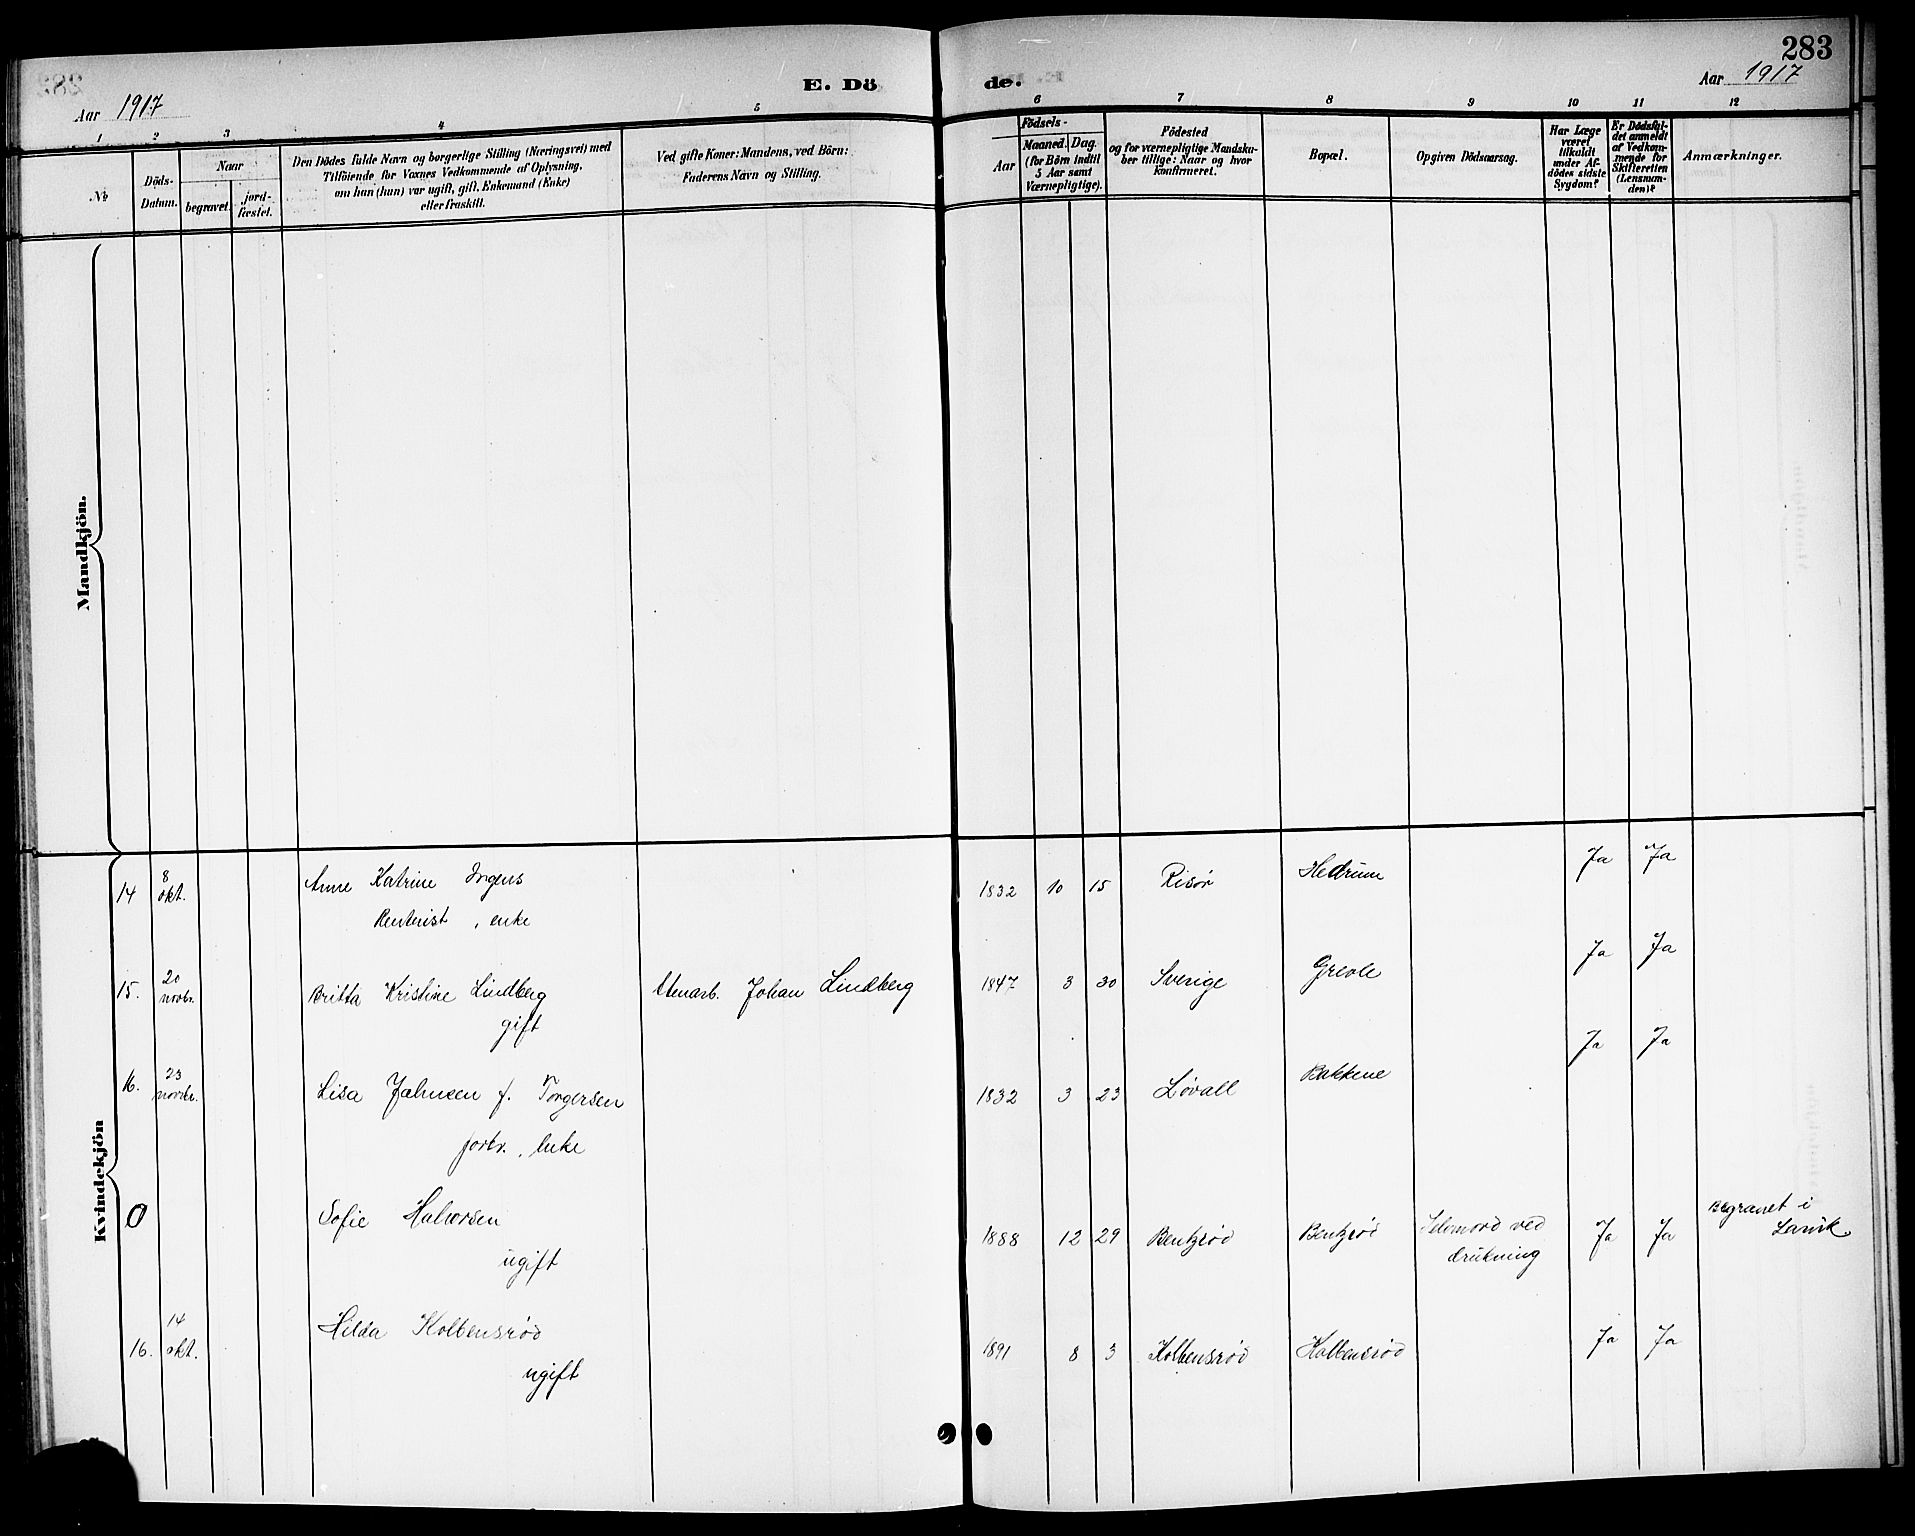 283
E. Dö de.
Aar 1917
Aar 1917
1 2 3 4 5 6 7 8 9 10 11 12
No
Döds-Datum.
Naar
begravet.
jord-fæstet.
Den Dödes fulde Navn og borgerlige Stilling (Næringsvei) med
Tilföiende for Voxnes Vedkommende af Oplysning,
om han (hun) var ugift, gift, Enkemand (Enke)
eller fraskilt.
Ved gifte Koner: Mandens, ved Börn:
Faderens Navn og Stilling.
Födsels-
Aar
Maaned. Dag.
(for Börn indtil
5 Aar samt
Værnepligtige).
Födested
og for værnepligtige Mandskaber tillige: Naar og hvor
konfirmeret.
Bopæl.
Opgiven Dödsaarsag.
Har Læge
været
tilkaldt
under Afdödes sidste
Sygdom?
Er Dödsfaldet anmeldt
af Vedkommende for
Skifteretten
(Lensmanden)?
Anmærkninger.
Mandkjön.
Kvindekjön
14 8 okt. Anne Katrine Ingens 1832 10 15 Risör Hedrum Ja Ja
Renterist, enke
15. 20 novbr. Britta Kristine Lindberg Stenarb. Johan Lindberg 1847 3 30 Sverige Grevle Ja Ja
gift
16. 23 novbr. Lisa Jahnsen f. Torgersen 1832 3 23 Løvall Bakkene Ja Ja
forbr., enke
0 Sofie Halvorsen 1888 12 29 Bentzrød Bentzrød Selvmord ved Ja Ja Begravet i
ugift drukning Larvik
16. 14 okt. Hilda Kolbensrød 1891 8 3 Kolbensrød Kolbensrød Ja Ja
ugift